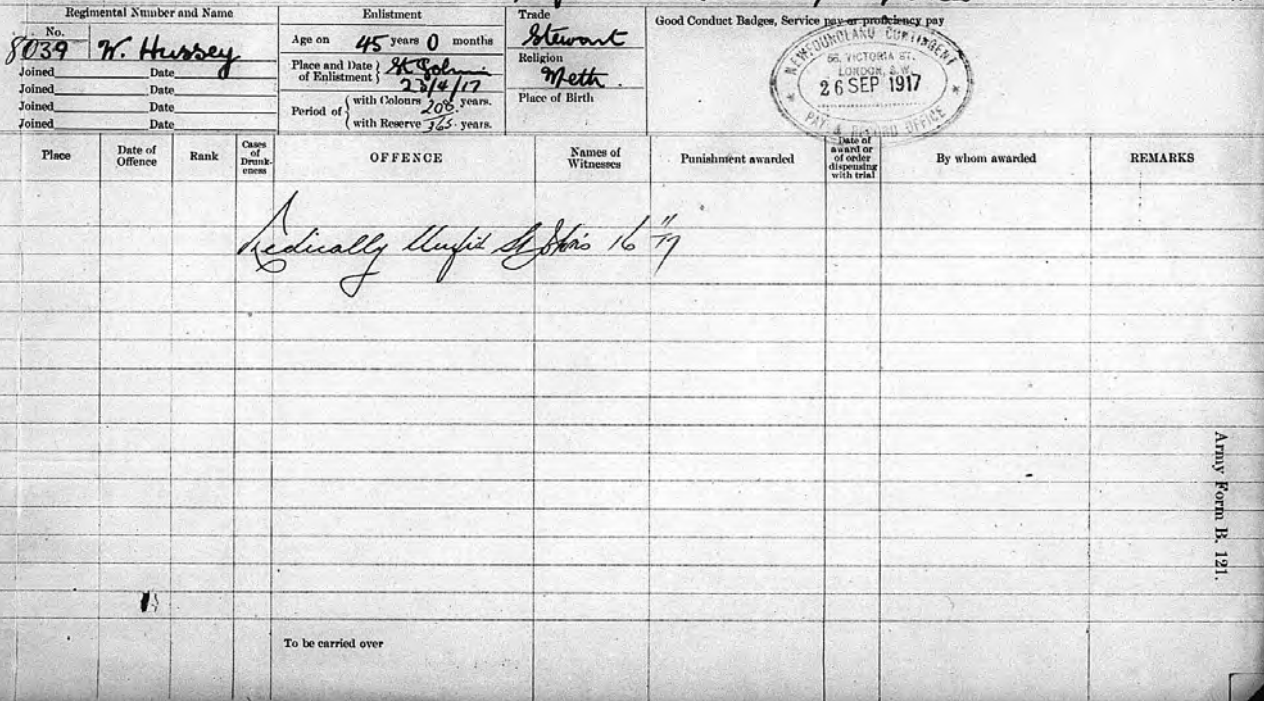 Regimental Number and Name
No.
8039 W. Hussey
Joined Date
Joined Date
Joined Date
Joined Date
Enlistment
Age on 45 years 0 months
Place and Date of Enlistment } St John's
/4/17
Period of { with Colours 208. years.
with Reserve 365. years.
Trade
Stewart
Religion
Meth.
Place of Birth
Good Conduct Badges, Service pay or proficiency pay
NEWFOUNDLAND CONTINGENT
VICTORIA ST.
LONDON, S.W.
26 SEP 1917
PAY & RECORD OFFICE
Place
Date of Offence
Rank
Cases of Drunk-eness
OFFENCE
Names of Witnesses
Punishment awarded
Date of award or of order dispensing with trial
By whom awarded
REMARKS
Medically Unfit St John's 16 11/17
Army Form B. 121.
To be carried over